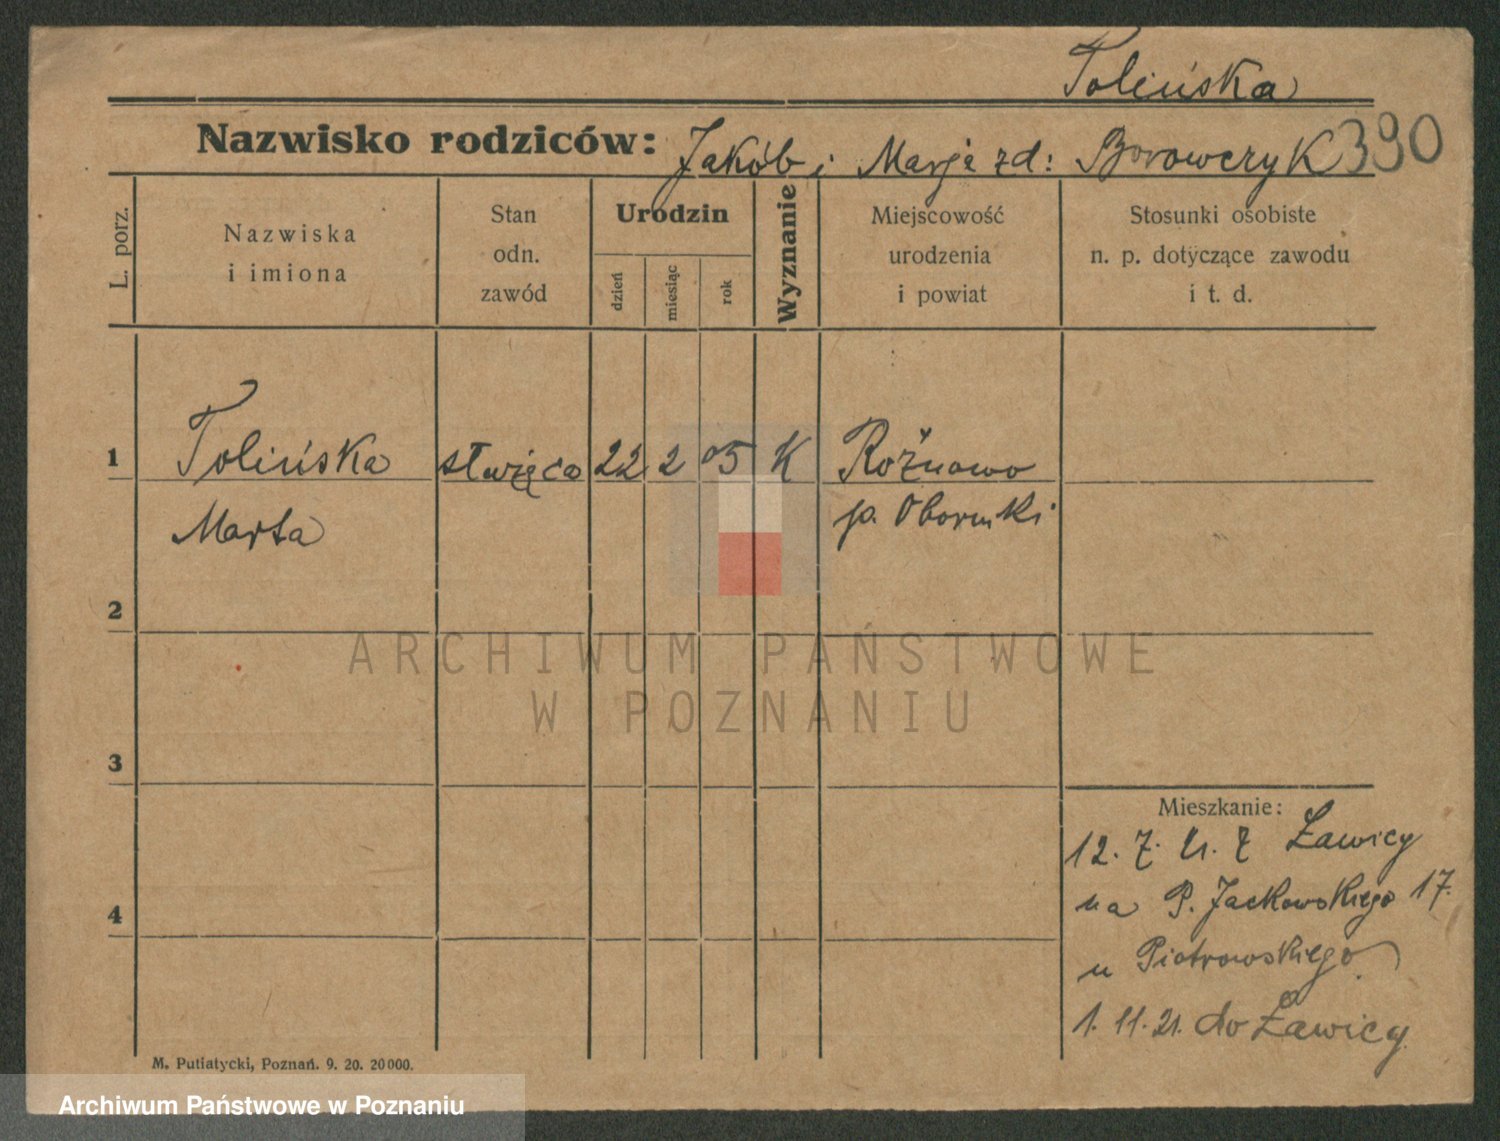 Tolińska
Nazwisko rodziców: Jakób i Marja zd: Borowczyk 390
L. porz.
Nazwiska
i imiona
Stan
odn.
zawód
Urodzin
dzień
miesiąc
rok
Wyznanie
Miejscowość
urodzenia
i powiat
Stosunki osobiste
n. p. dotyczące zawodu
i t. d.
1 Tolińska służąca 22 2 05 K Rożnowo
Marta p. Obornki
2
3
4
Mieszkanie:
12. 7. 21. z Ławicy
na P. Jackowskiego 17.
u Piotrowskiego.
1. 11. 21. do Ławicy
M. Putiatycki, Poznań. 9. 20. 20000.
ARCHIWUM PAŃSTWOWE
W POZNANIU
Archiwum Państwowe w Poznaniu